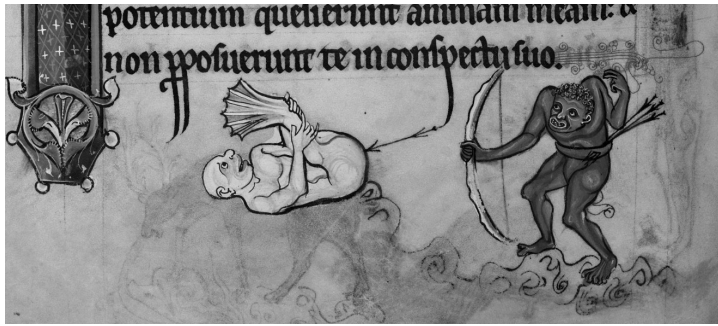 potentium quesierunt animam meam: &
non ꝓposuerunt te in conspectu suo.